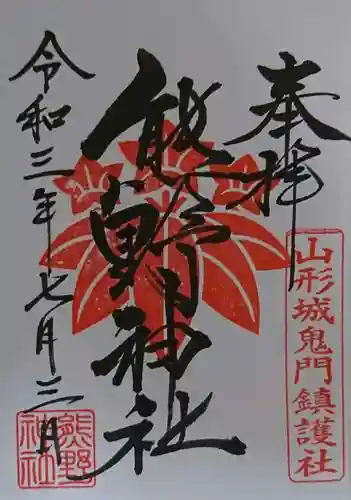 奉拝
山形城鬼門鎮護社
熊野神社
令和三年七月三日
熊野
神社